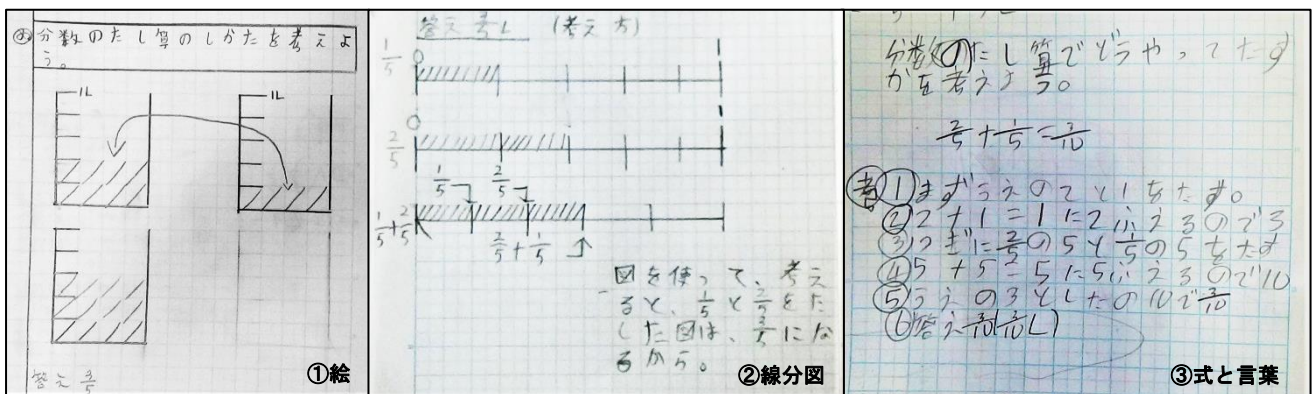 め 分数のたし算のしかたを考えよ
う。
1L
1L
答え 3/5
①絵
答え 3/5L (考え方)
1/5
0
2/5
0
1/5 2/5
1/5+2/5
2/5+1/5
図を使って、考え
ると、1/5と2/5をた
した図は、3/5にな
るから。
②線分図
分数のたし算でどうやってたす
かを考えよう。
2/5+1/5=3/10
考 ①まずうえの2と1をたす。
②2+1=1に2ふえるので3
③つぎに2/5の5と1/5の5をたす
④5+5=5に5ふえるので10
⑤うえの3としたの10で3/10
⑥答え3/10(3/10L)
③式と言葉